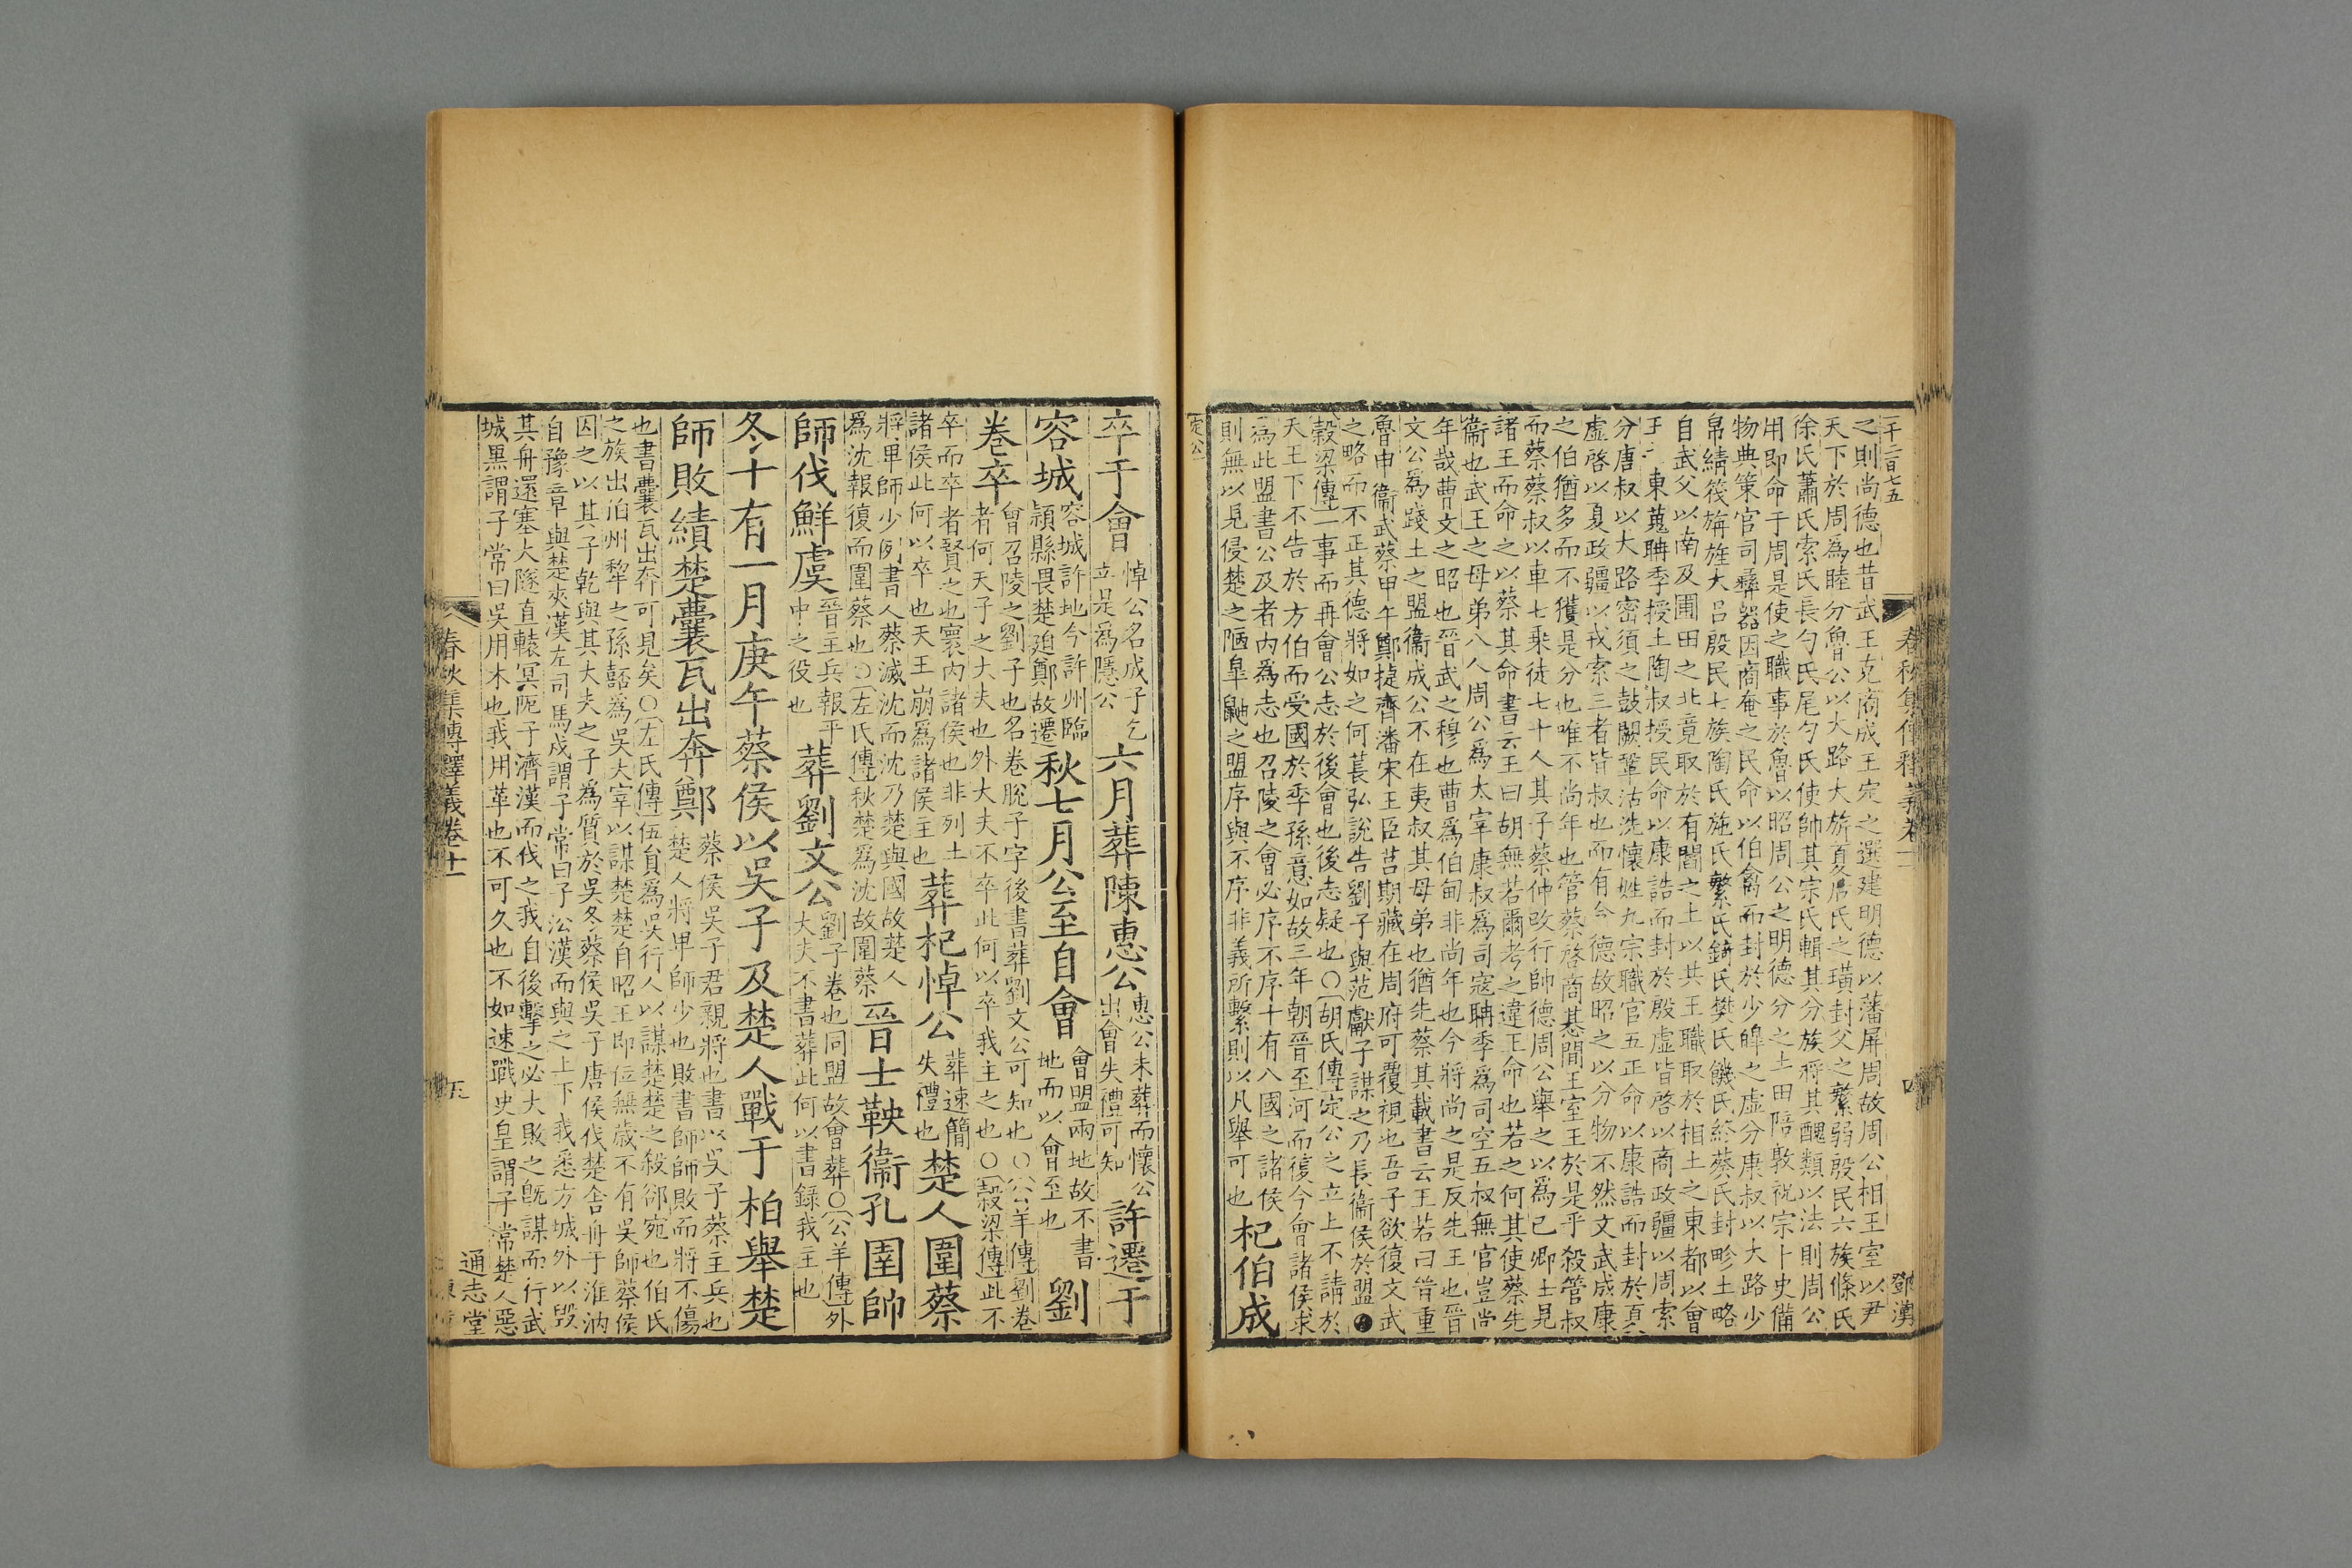 之則尚德也昔武王克商成王定之選建明德以藩屏周故周公相王室以尹
天下於周為睦分魯公以大路大旂夏后氏之璜封父之繁弱殷民六族條氏
徐氏蕭氏索氏長勺氏尾勺氏使帥其宗氏輯其分族將其醜類以法則周公
用即命于周是使之職事於魯以昭周公之明德分之土田陪敦祝宗卜史備
物典策官司彝器因商奄之民命以伯禽而封於少皥之虛分康叔以大路少
帛綪筏旃旌大呂殷民七族陶氏施氏繁氏錡氏樊氏饑氏終葵氏封畛土略
自武父以南及圃田之北竟取於有閻之土以共王職取於相土之東都以會
王 東蒐聃季授土陶叔授民命以康誥而封於殷虛皆啓以商政疆以周索
分唐叔以大路密須之鼓闕鞏沽洗懷姓九宗職官五正命以康誥而封於夏
虛啓以夏政疆以戎索三者皆叔也而有令德故昭之以分物不然文武成康
之伯猶多而不獲是分也唯不尚年也管蔡啓商惎間王室王於是乎殺管叔
而蔡蔡叔以車七乗徒七十人其子蔡仲改行帥德周公舉之以為已卿士見
諸王而命之以蔡其命書云王曰胡無若爾考之違王命也若之何其使蔡先
衞也武王之母弟八人周公為太宰康叔為司寇聃季為司空五叔無官豈尚
年哉曹文之昭也晉武之穆也曹為伯甸非尚年也今將尚之是反先王也晉
文公為踐土之盟衞成公不在夷叔其母弟也猶先蔡其載書云王若曰晉重
魯申衞武蔡甲午鄭捷齊潘宋王臣莒期藏在周府可覆視也吾子欲復文武
之略而不正其德將如之何萇弘說告劉子與范獻子謀之乃長衞侯於盟
穀梁傳一事而再會公志於後會也後志疑也○胡氏傳定公之立上不請於
天王下不告於方伯而受國於季孫意如故三年朝晉至河而復今會諸侯求
為此盟書公及者内為志也召陵之會必序不序十有八國之諸侯
則無以見侵楚之陋皐鼬之盟序與不序非義所繫則以凡舉可也 杞伯成
定公
卒于會 悼公名成子乞立是為隱公 六月葬陳惠公 惠公未葬而懷公出會失禮可知 許遷于
容城 容城許地今許州臨潁縣畏楚廹鄭故遷 秋七月公至自會 會盟兩地故不書地而以會至也 劉
卷卒 會召陵之劉子也名卷脫子字後書葬劉文公可知也○公羊傳劉卷者何天子之大夫也外大夫不卒此何以卒我主之也○穀梁傳此不
卒而卒者賢之也寰内諸侯也非列土諸侯此何以卒也天王崩為諸侯主也 葬杞悼公 葬速簡失禮也 楚人圍蔡
將卑師少例書人蔡滅沈而沈乃楚與國故楚人為沈報復而圍蔡也○左氏傳秋楚為沈故圍蔡 晉士鞅衞孔圉帥
師伐鮮虞 晉主兵報平中之役也 葬劉文公 劉子卷也同盟故會葬○公羊傳外大夫不書葬此何以書録我主也
冬十有一月庚午蔡侯以吳子及楚人戰于柏舉楚
師敗績楚囊瓦出奔鄭 蔡侯吳子君親將也書以吳子蔡主兵也楚人將卑師少也敗書師師敗而將不傷
也書囊瓦出奔可見矣○左氏傳伍負為吳行人以謀楚楚之殺郤宛也伯氏
之族出伯州犂之孫嚭為吳大宰以謀楚楚自昭王即位無歲不有吳師蔡侯
因之以其子乾與其大夫之子為質於吳冬蔡侯吳子唐侯伐楚舍舟于淮汭
自豫章與楚夾漢左司馬戍謂子常曰子㳂漢而與之上下我悉方城外以毀
其舟還塞大隧直轅冥阨子濟漢而伐之我自後擊之必大敗之旣謀而行武
城黒謂子常曰吳用木也我用革也不可久也不如速戰史皇謂子常楚人惡
春秋集傳釋義卷十一
五
通志堂